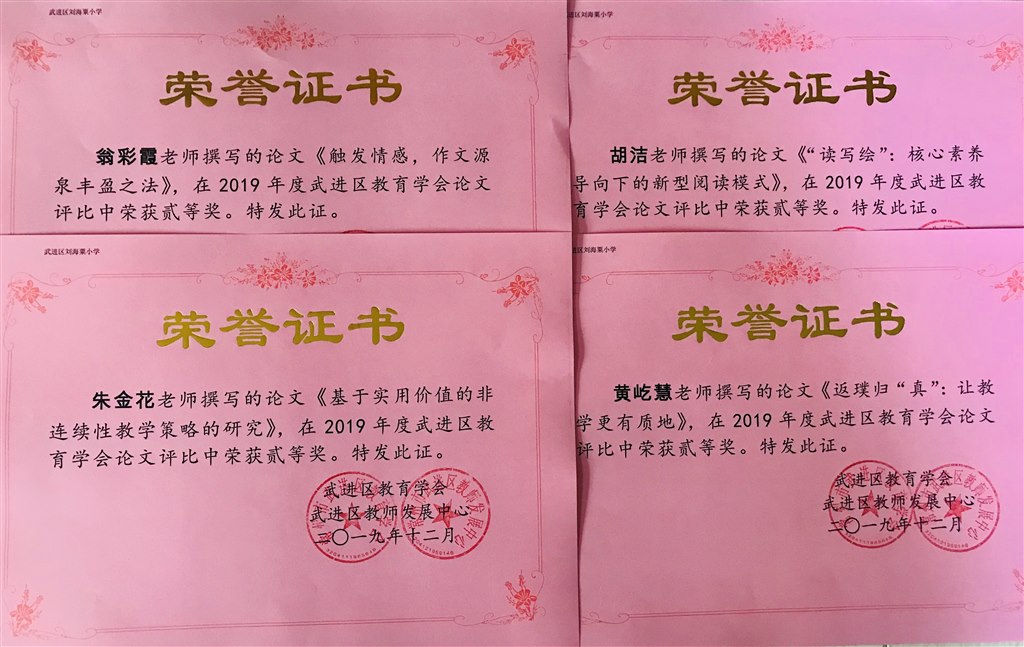 武进区刘海粟小学
荣誉证书
翁彩霞老师撰写的论文《触发情感，作文源
泉丰盈之法》，在 2019 年度武进区教育学会论文
评比中荣获贰等奖。特发此证。
进区刘海粟小学
荣誉证书
胡洁老师撰写的论文《“读写绘”：核心素养
导向下的新型阅读模式》，在 2019 年度武进区教
育学会论文评比中荣获贰等奖。特发此证。
武进区刘海粟小学
荣誉证书
朱金花老师撰写的论文《基于实用价值的非
连续性教学策略的研究》，在 2019 年度武进区教
育学会论文评比中荣获贰等奖。特发此证。
武进区教育学会
武进区教师发展中心
二〇一九年十二月
进区刘海粟小学
荣誉证书
黄屹慧老师撰写的论文《返璞归“真”：让教
学更有质地》，在 2019 年度武进区教育学会论文
评比中荣获贰等奖。特发此证。
武进区教育学会
武进区教师发展中心
二〇一九年十二月